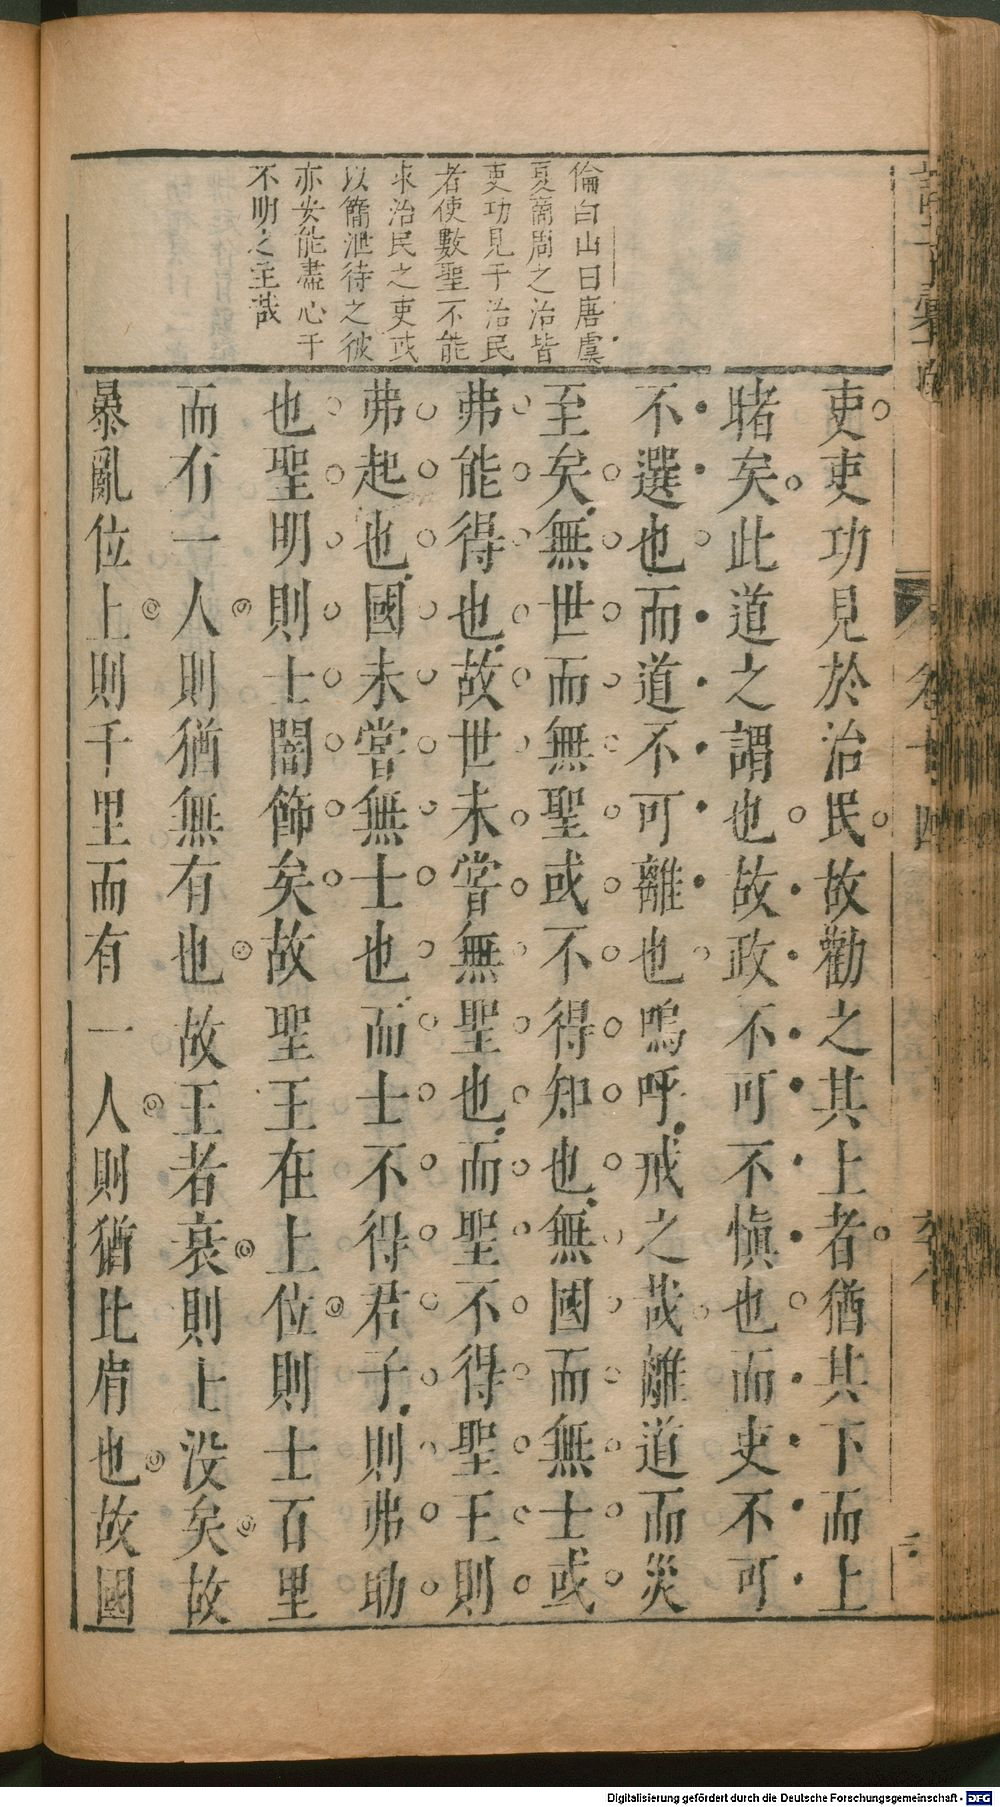 倫白山曰唐虞
夏商周之治皆
吏功見于治民
者使數聖不能
求治民之吏或
以簡泄待之彼
亦安能盡心于
不明之主哉
吏吏功見於治民故勸之其上者猶其下而上
睹矣此道之謂也故政不可不慎也而吏不可
不選也而道不可離也嗚呼戒之哉離道而災
至矣無世而無聖或不得知也無國而無士或
弗能得也故世未嘗無聖也而聖不得聖王則
弗起也國未嘗無士也而士不得君子則弗助
也聖明則士闇飾矣故聖王在上位則士百里
而有一人則猶無有也故王者衰則士沒矣故
暴亂位上則千里而有一人則猶比肩也故國
卷十四
二
Digitalisierung gefördert durch die Deutsche Forschungsgemeinschaft - DFG